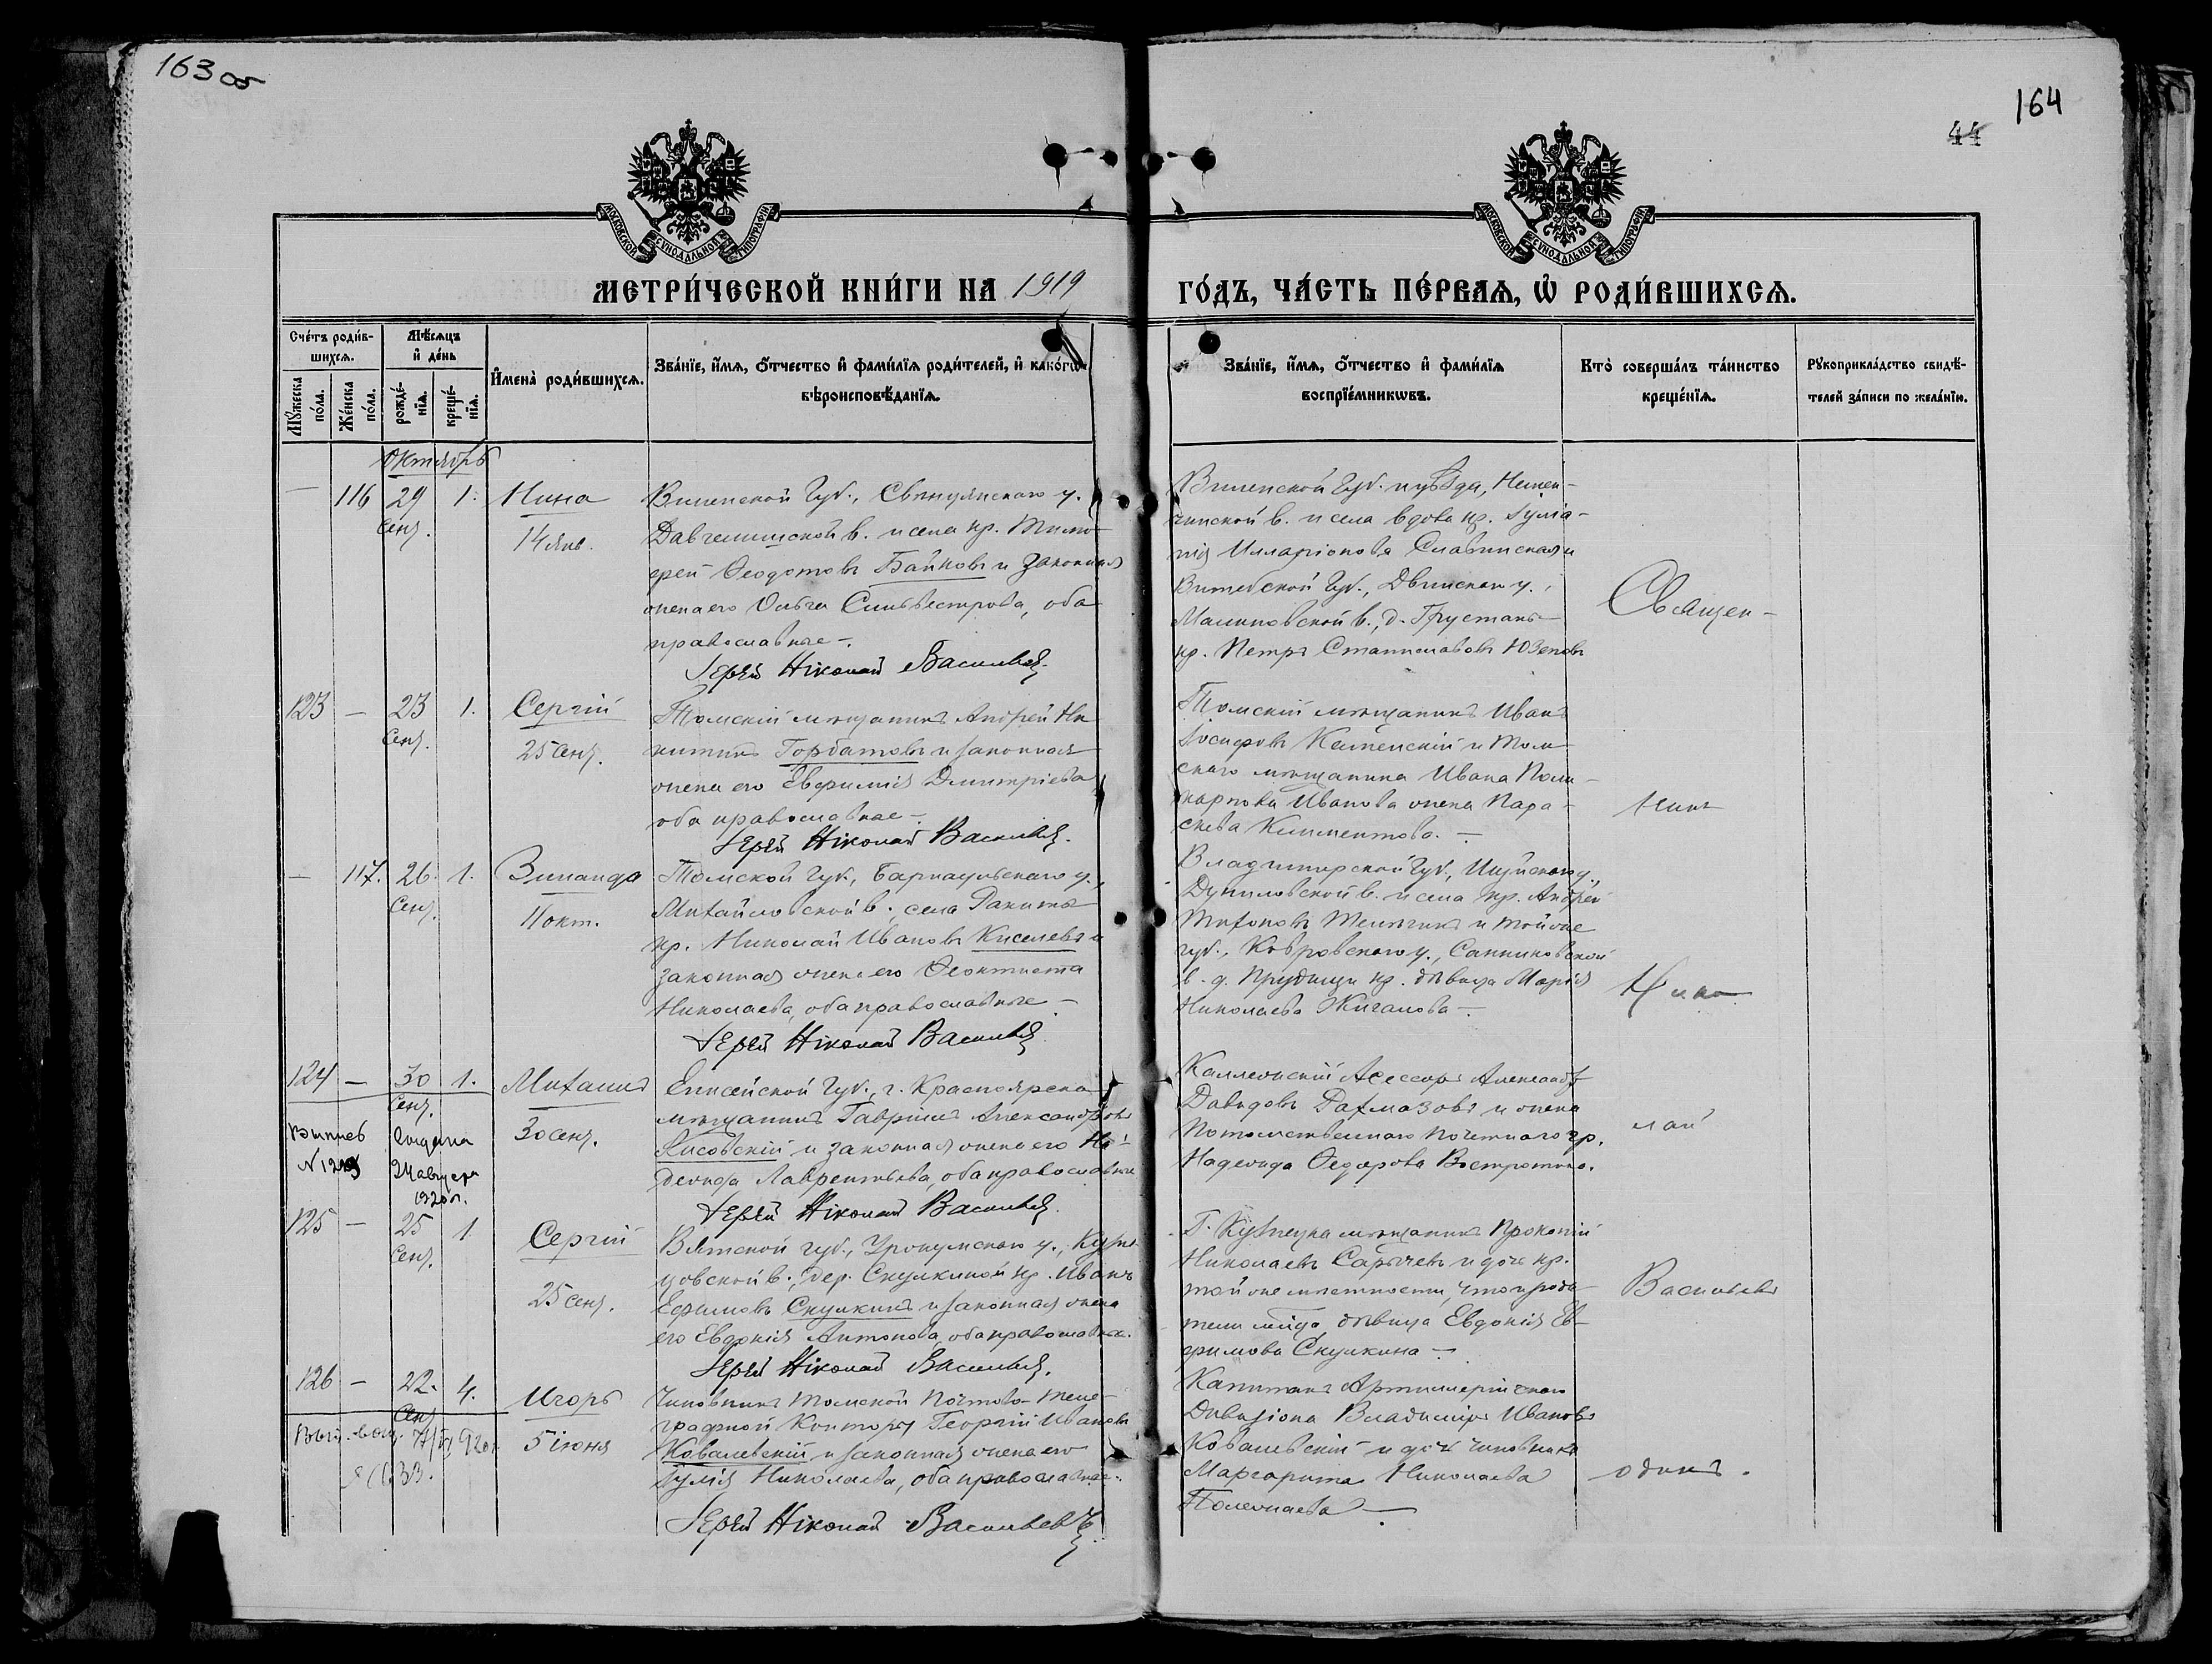 163 об
164
44
МОСКОВСКОЙ СѴНОДАЛЬНОЙ ТИПОГРАФІИ
МОСКОВСКОЙ СѴНОДАЛЬНОЙ ТИПОГРАФІИ
МЕТРИ́ЧЕСКОЙ КНИ́ГИ НА 1919
ГО́ДЪ, ЧА́СТЬ ПЕ́РВАЯ, Ѡ РОДИ́ВШИХСЯ.
Сче́тъ роди́в-
шихся.
Мѣ́сяцъ
и҆ де́нь
Мꙋ́жеска
по́ла.
Же́нска
по́ла.
рожде́-
нїя.
креще́-
нїя.
И҆мена̀ роди́вшихся.
Зва́нїе, и҆́мя, ѻ҆́тчество и҆ фами́лїя роди́телей, и҆ како́гѡ
вѣроисповѣ́данїя.
Зва́нїе, и҆́мя, ѻ҆́тчество и҆ фами́лїя
воспрїе́мникѡвъ.
Кто̀ соверша́лъ та́инство
креще́нїя.
Рꙋкоприкла́дство свидѣ́-
телей за́писи по жела́нїю.
Октябрь
— 116 29 1. Нина
Сент.
14 янв.
Виленской Губ., Свянцянскаго у.
в. и села кр. Тимо-
фей Феодотовъ Байковъ и законная
жена его Ольга Сильвестрова, оба
православные —.
Іерей Николай Васильев.
Виленской Губ. и уѣзда, Немен-
чинской в. и села вдова кр. Іулiа-
нія Илларіонова Славинская и
Витебской Губ., Двинскаго у.,
Малиновской в., д. Трустаны
кр. Петръ Станиславовъ Юзеповъ
Священ-
123 — 23 1. Сергій
Сент.
25 Сент.
Томскій мѣщанинъ Андрей Ни-
китинъ Горбатовъ и законная
жена его Евфимія Дмитріева
оба православные —.
Іерей Николай Васильев.
Томскій мѣщанинъ Иванъ
Іосифовъ Каменскій и Том-
скаго мѣщанина Ивана Поли-
карпова Иванова жена Пара-
скева Климентова. —
никъ
— 117. 26. 1. Зинаида
Сент.
11 окт.
Томской Губ., Барнаульскаго у.,
Михайловской в., села Ракиты
кр. Николай Ивановъ Киселевъ и
законная жена его Феоктиста
Николаева, оба православные —
Іерей Николай Васильев.
Владимирской Губ., Шуйскаго у.,
Дуниловской в. и села кр. Андрей
Тихоновъ и той же
губ., Ковровскаго у., Санниковской
в. д. Прудищи кр. дѣвица Марія
Николаева Жигалова —.
Нико-
124 — 30 1. Михаилъ
Сент.
30 сент.
Выпись
выдана
24 августа
1920 г.
Енисейской Губ., г. Красноярска
мѣщанинъ Гавріилъ Александровъ
Лисовскій и законная жена его На-
дежда Лаврентьева, оба православные
Іерей Николай Васильев.
Коллежскій Асессоръ Александръ
Давидовъ Рахмазовъ и жена
Потомственнаго почетнаго гр.
Надежда Федорова Востротина.
лай
125 — 25 1 Сергій
Сент.
25 сент.
Вятской губ., Уржумскаго у., Кузне-
цовской в., дер. Скулкиной кр. Иванъ
Ефимовъ Скулкинъ и законная жена
его Евдокія Антонова, оба православные.
Іерей Николай Васильев.
Г. Кузнецка мѣщанинъ Прокопій
Николаевъ Сарычевъ и дочь кр.
той же мѣстности, что и роди-
тели дѣвица Евдокія Еф-
имова Скулкина —.
Васильевъ
126 — 22. 4. Игорь
Сент.
5 іюня
Чиновникъ Томской Почтово-теле-
графной Конторы Георгій Ивановъ
Ковалевскій и законная жена его
Іулія Николаева, оба православные.
Іерей Николай Васильевъ.
Капитанъ Артиллерійскаго
Дивизіона Владиміръ Ивановъ
Ковалевскій и дочь чиновника
Маргарита Николаева
Полежаева —.
одинъ.